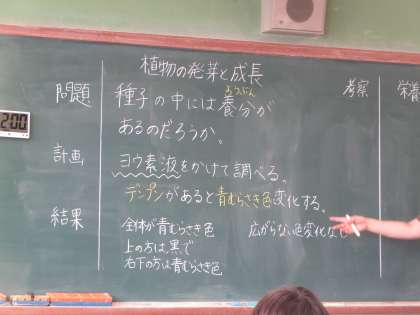 植物の発芽と成長
問題
種子の中には養分が
ようぶん
あるのだろうか。
計画
ヨウ素液をかけて調べる。
デンプンがあると青むらさき色変化する。
結果
全体が青むらさき色
上の方は黒で
右下の方は青むらさき色
広がらない色変化なし
考察
栄養
2:00